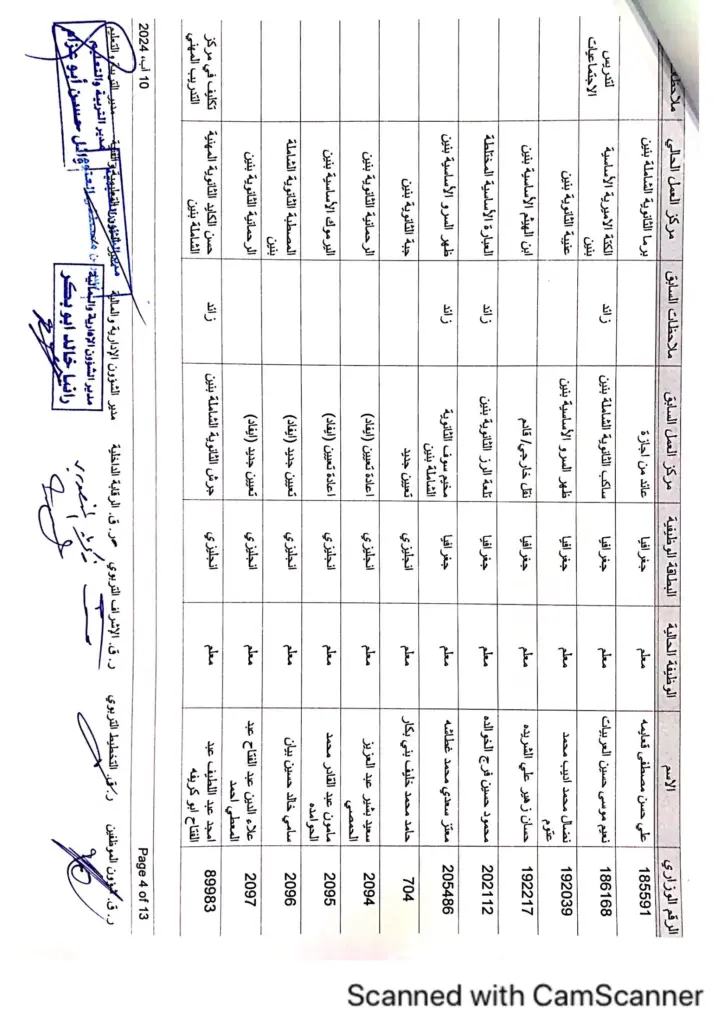 الرقم الوزاري الاسم الوظيفة الحالية البطاقة الوظيفية مركز العمل السابق ملاحظات السابق مركز العمل الحالي
185591 علي حسن مصطفى قعايمه معلم جغرافيا عائد من اجازة برما الثانوية الشاملة بنين
186168 نعيم موسى حسين العربيات معلم جغرافيا ساكب الثانوية الشاملة بنين زائد الكتة الاميرية الأساسية بنين لتدريس الاجتماعيات
192039 نضال محمد اديب محمد عتوم معلم جغرافيا ظهر السرو الأساسية بنين عنيبة الثانوية بنين
192217 حسان زهير علي الشريده معلم جغرافيا نقل خارجي/ قادم ابن الهيثم الأساسية بنين
202112 محمود حسين فرج الخوالده معلم جغرافيا تلعة الرز الثانوية بنين زائد العبارة الأساسية المختلطة
205486 معتز سعدي محمد غطاشه معلم جغرافيا مخيم سوف الثانوية الشاملة بنين زائد ظهر السرو الأساسية بنين
704 حامد محمد خليف بني بكار معلم انجليزي تعيين جديد جبة الثانوية بنين
2094 سعيد بشير عبد العزيز الحمصي معلم انجليزي اعادة تعيين (ايفاد) الرحمانية الثانوية بنين
2095 مامون عبد القادر محمد الحوامده معلم انجليزي اعادة تعيين (ايفاد) اليرموك الأساسية بنين
2096 سامي خالد حسين بيان معلم انجليزي تعيين جديد (ايفاد) المصطبة الثانوية الشاملة بنين
2097 علاء الدين عبد الفتاح عبد المعطي احمد معلم انجليزي تعيين جديد (ايفاد) الرحمانية الثانوية بنين
89983 امجد عبد اللطيف عبد الفتاح ابو كريفه معلم انجليزي جرش الثانوية الشاملة بنين زائد حسن الكايد الثانوية المهنية الشاملة بنين تكليف في مركز التدريب المهني
Page 4 of 13 10 آب، 2024
ر. ق. شؤون الموظفين ر. ق. التخطيط التربوي ر. ق. الإشراف التربوي ر. ق. الرقابة الداخلية مدير الشؤون الإدارية والمالية مدير التربية والتعليم
مدير الشؤون الادارية والمالية
رانيا خالد ابو بكر
مدير التربية والتعليم
حسن أبو عزام
Scanned with CamScanner